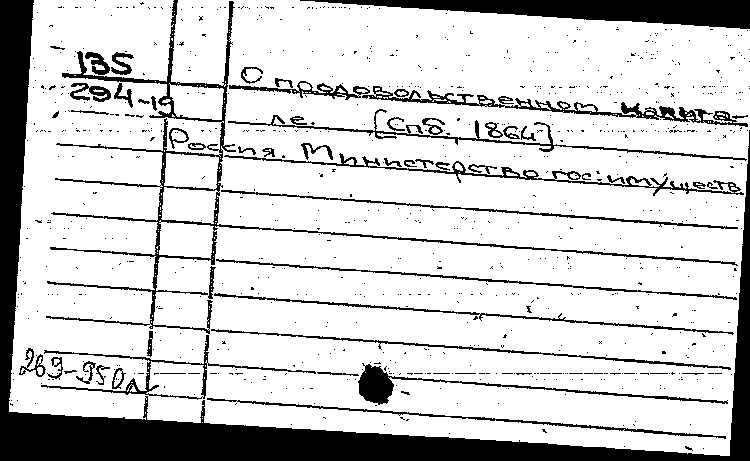 135
294-19
О продовольственном капита-
ле. [Спб., 1864].
Россия. Министерство гос. имуществ
269-950л